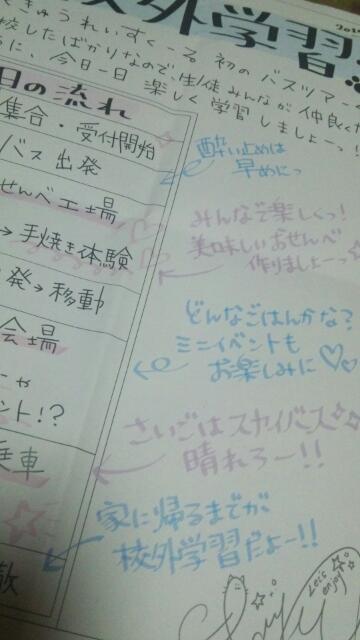 校外学習
きゅうれいすくーる 初の バスツアー
校したばかりなので、生徒みんなが 仲良く
に、今日一日 楽しく 学習しましょーっ!
日の流れ
集合・受付開始
バス出発
せんべ工場
→手焼き体験
発→移動
会場
ント!?
乗車
散
酔い止めは
早めにっ
みんなで楽しくっ!
美味しいおせんべ
作りましょーっ☆
どんなごはんかな?
ミニイベントも
お楽しみに♡♡
さいごはスカイバス☆
晴れろー!!
家に帰るまでが、
校外学習だよー!!
Let's
enjoy